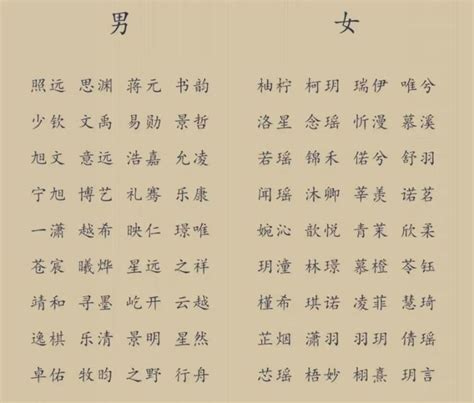 男
女
照远 思渊 蒋元 书韵
柚柠 柯玥 瑞伊 唯兮
少钦 文禹 易勋 景哲
洛星 念瑶 忻漫 慕溪
旭文 意远 浩嘉 允凌
若瑶 锦禾 偌兮 舒羽
宁旭 博艺 礼骞 乐康
闻瑶 沐卿 莘羡 诺茗
一潇 越希 映仁 璟唯
婉沁 歆悦 青茉 欣柔
苍宸 曦烨 星远 之祥
玥潼 林璟 慕橙 苓钰
靖和 寻墨 屹开 云越
槿希 琪诺 凌菲 慧琦
逸棋 乐清 景明 星然
芷烟 潇羽 羽玥 倩瑶
卓佑 牧昀 之野 行舟
芯瑶 梧妙 栩熹 玥言